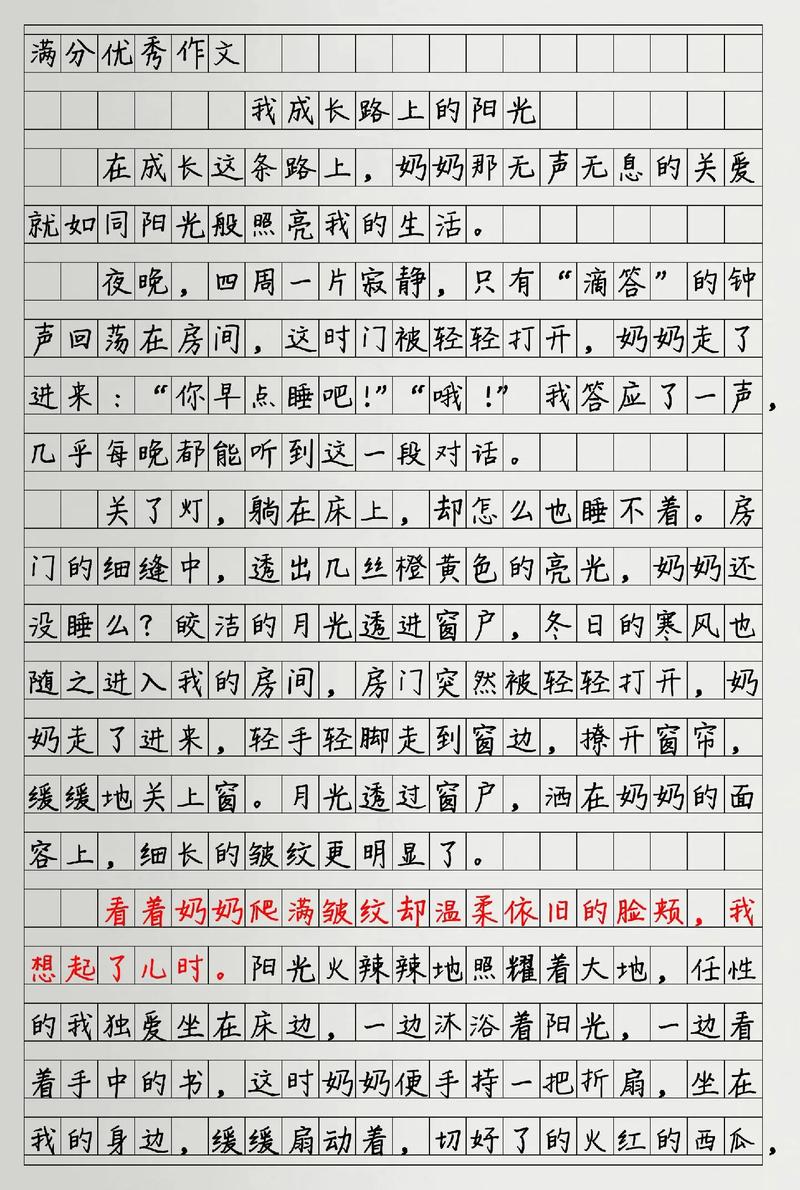 满分优秀作文
我成长路上的阳光
在成长这条路上，奶奶那无声无息的关爱
就如同阳光般照亮我的生活。
夜晚，四周一片寂静，只有“滴答”的钟
声回荡在房间，这时门被轻轻打开，奶奶走了
进来：“你早点睡吧！”“哦！”我答应了一声，
几乎每晚都能听到这一段对话。
关了灯，躺在床上，却怎么也睡不着。房
门的细缝中，透出几丝橙黄色的亮光，奶奶还
没睡么？皎洁的月光透进窗户，冬日的寒风也
随之进入我的房间，房门突然被轻轻打开，奶
奶走了进来，轻手轻脚走到窗边，撩开窗帘，
缓缓地关上窗。月光透过窗户，洒在奶奶的面
容上，细长的皱纹更明显了。
看着奶奶爬满皱纹却温柔依旧的脸颊，我
想起了儿时。阳光火辣辣地照耀着大地，任性
的我独爱坐在床边，一边沐浴着阳光，一边看
着手中的书，这时奶奶便手持一把折扇，坐在
我的身边，缓缓扇动着，切好了的火红的西瓜，